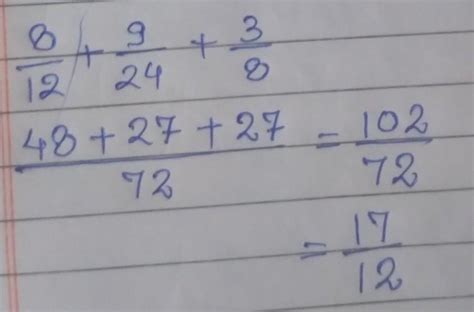 8/12 + 9/24 + 3/8
(48 + 27 + 27)/72 = 102/72
= 17/12